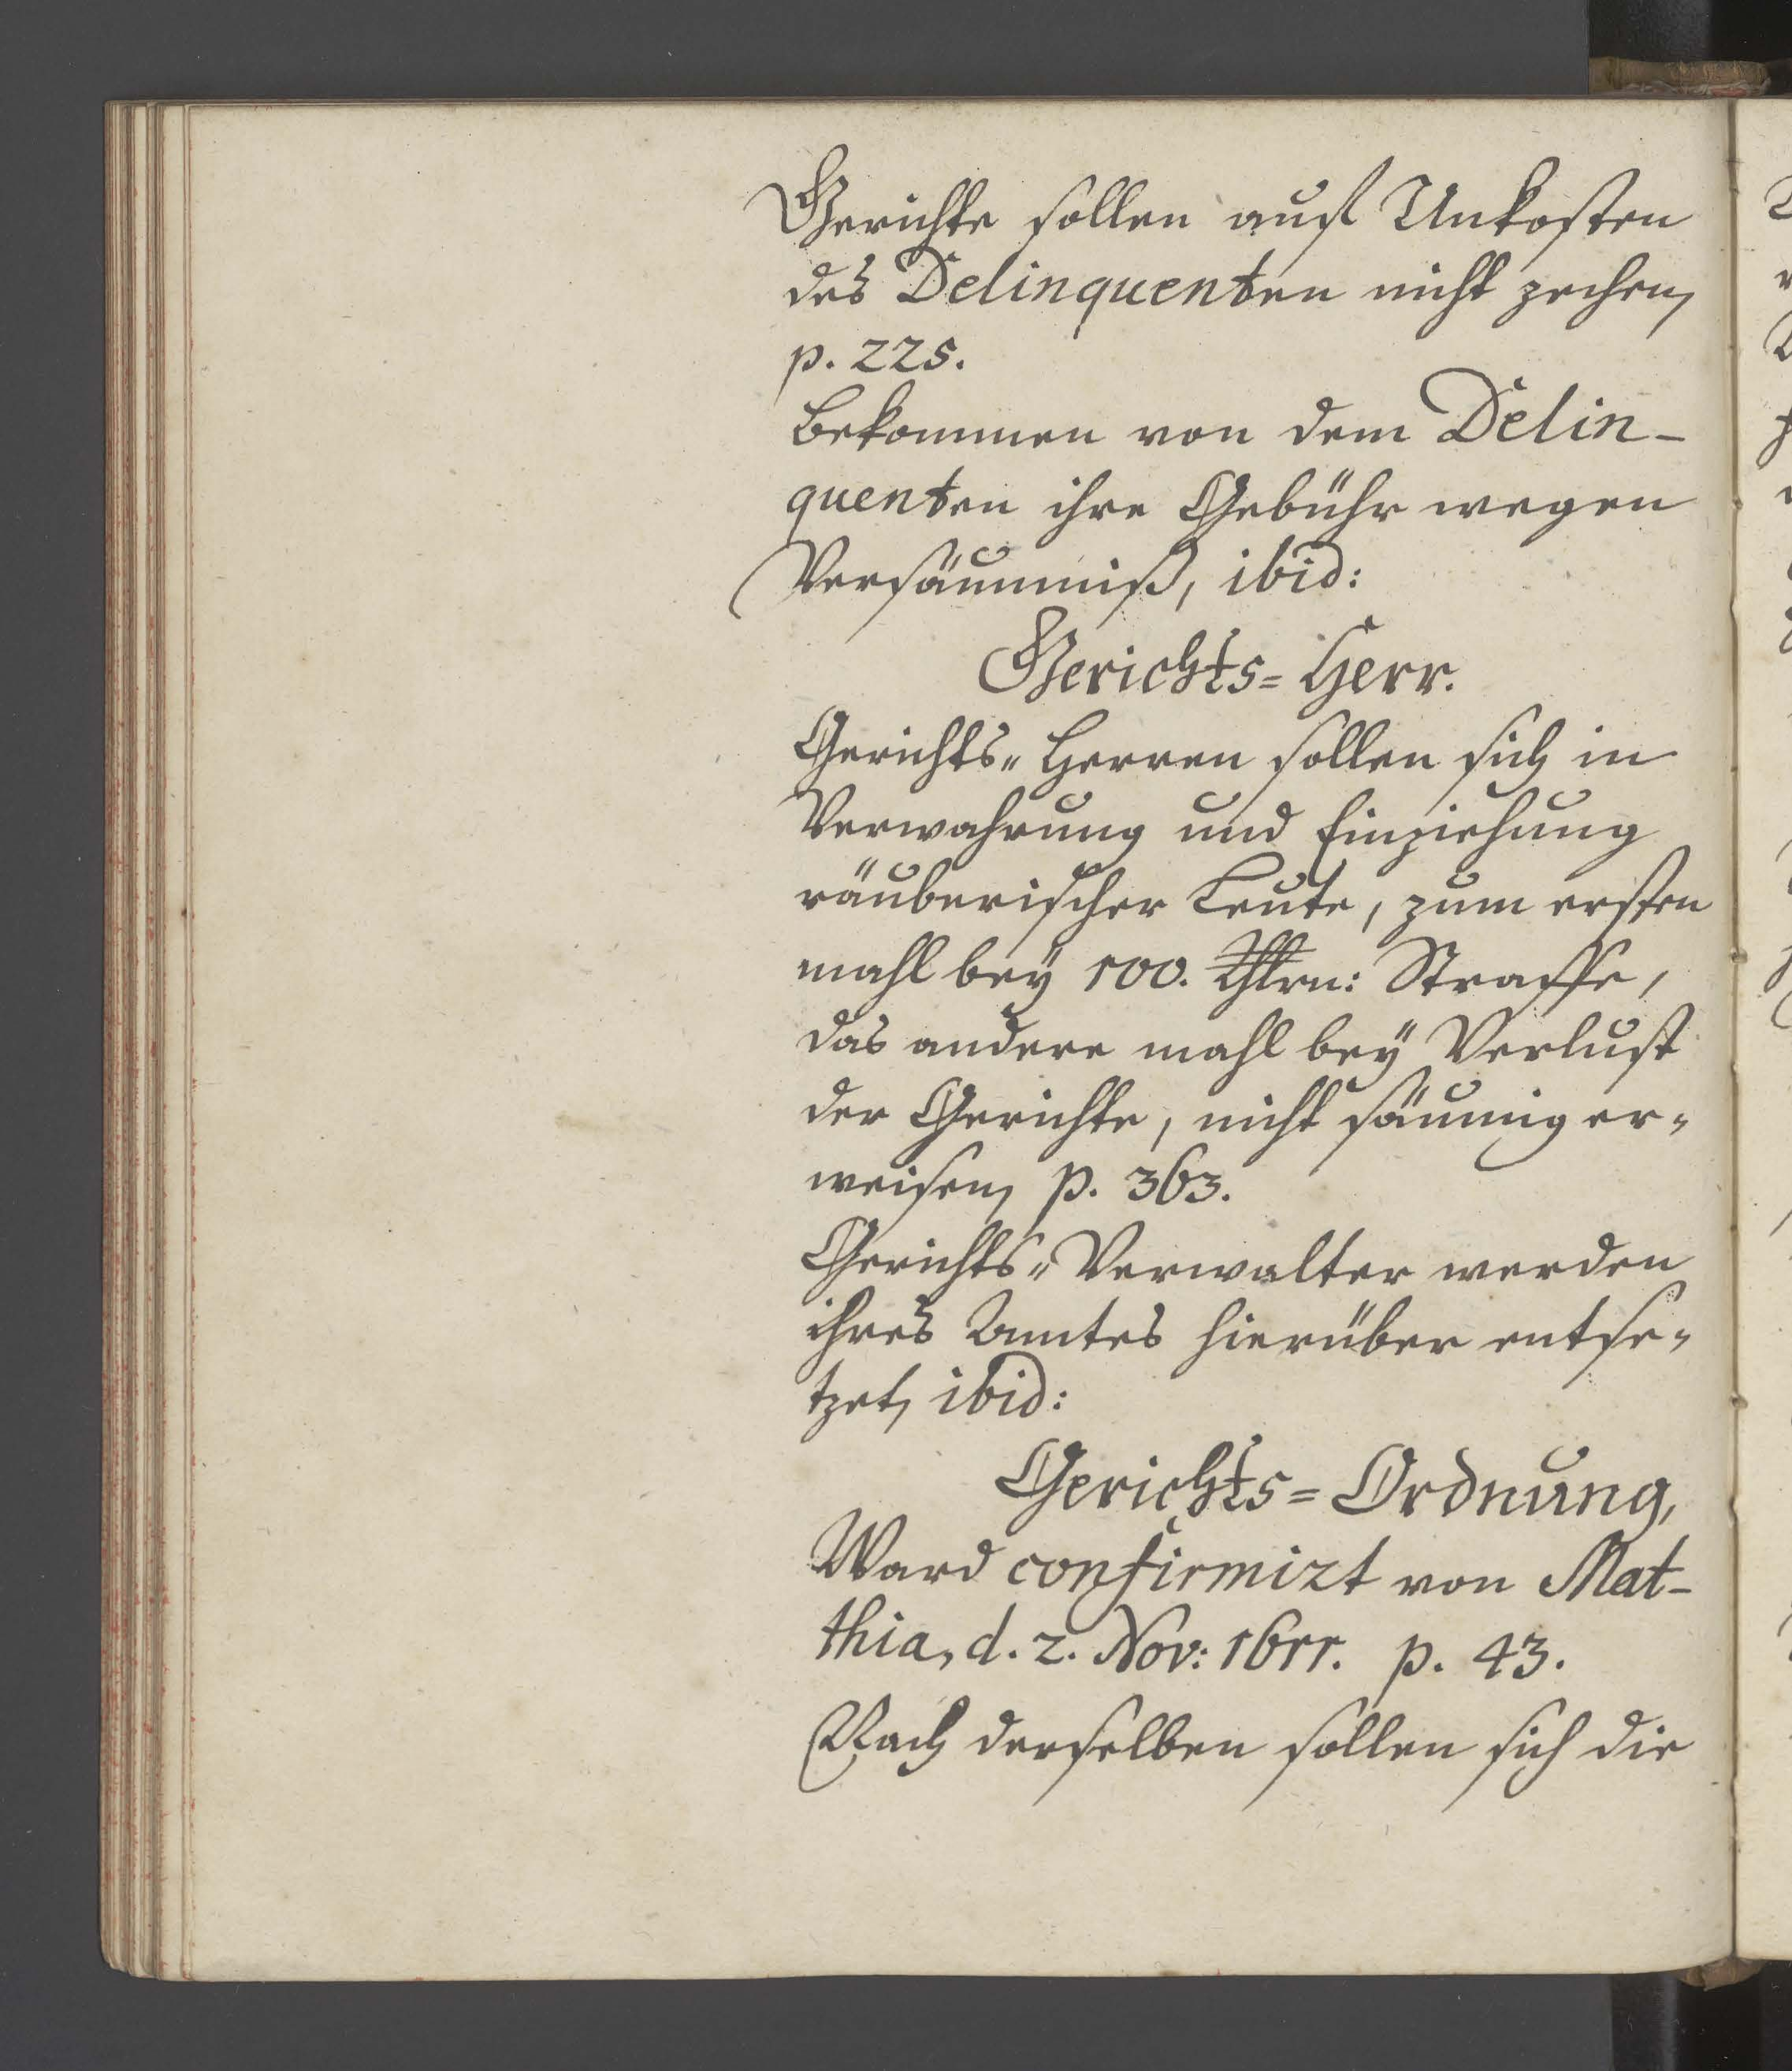 Gerichte sollen auf Unkosten
des Delinquenten nicht zechen,
p. 225.
Bekommen von dem Delin-
quenten ihre Gebühr wegen
Versäumniß, ibid:
Gerichts= Herr.
Gerichts„ Herren sollen sich in
Verwahrung und Einziehung
räuberischer Leute, zum ersten
mahl beÿ 100. Thlrn: Straffe,
das andere mahl beÿ Verlust
der Gerichte, nicht säumig er„
weisen, p. 363.
Gerichts„ Verwalter werden
ihres Amtes hierüber entse„
tzet, ibid:
Gerichts= Ordnung,
Ward confirmirt von Mat-
thia, d. 2. Nov: 1611. p. 43.
Nach derselben sollen sich die